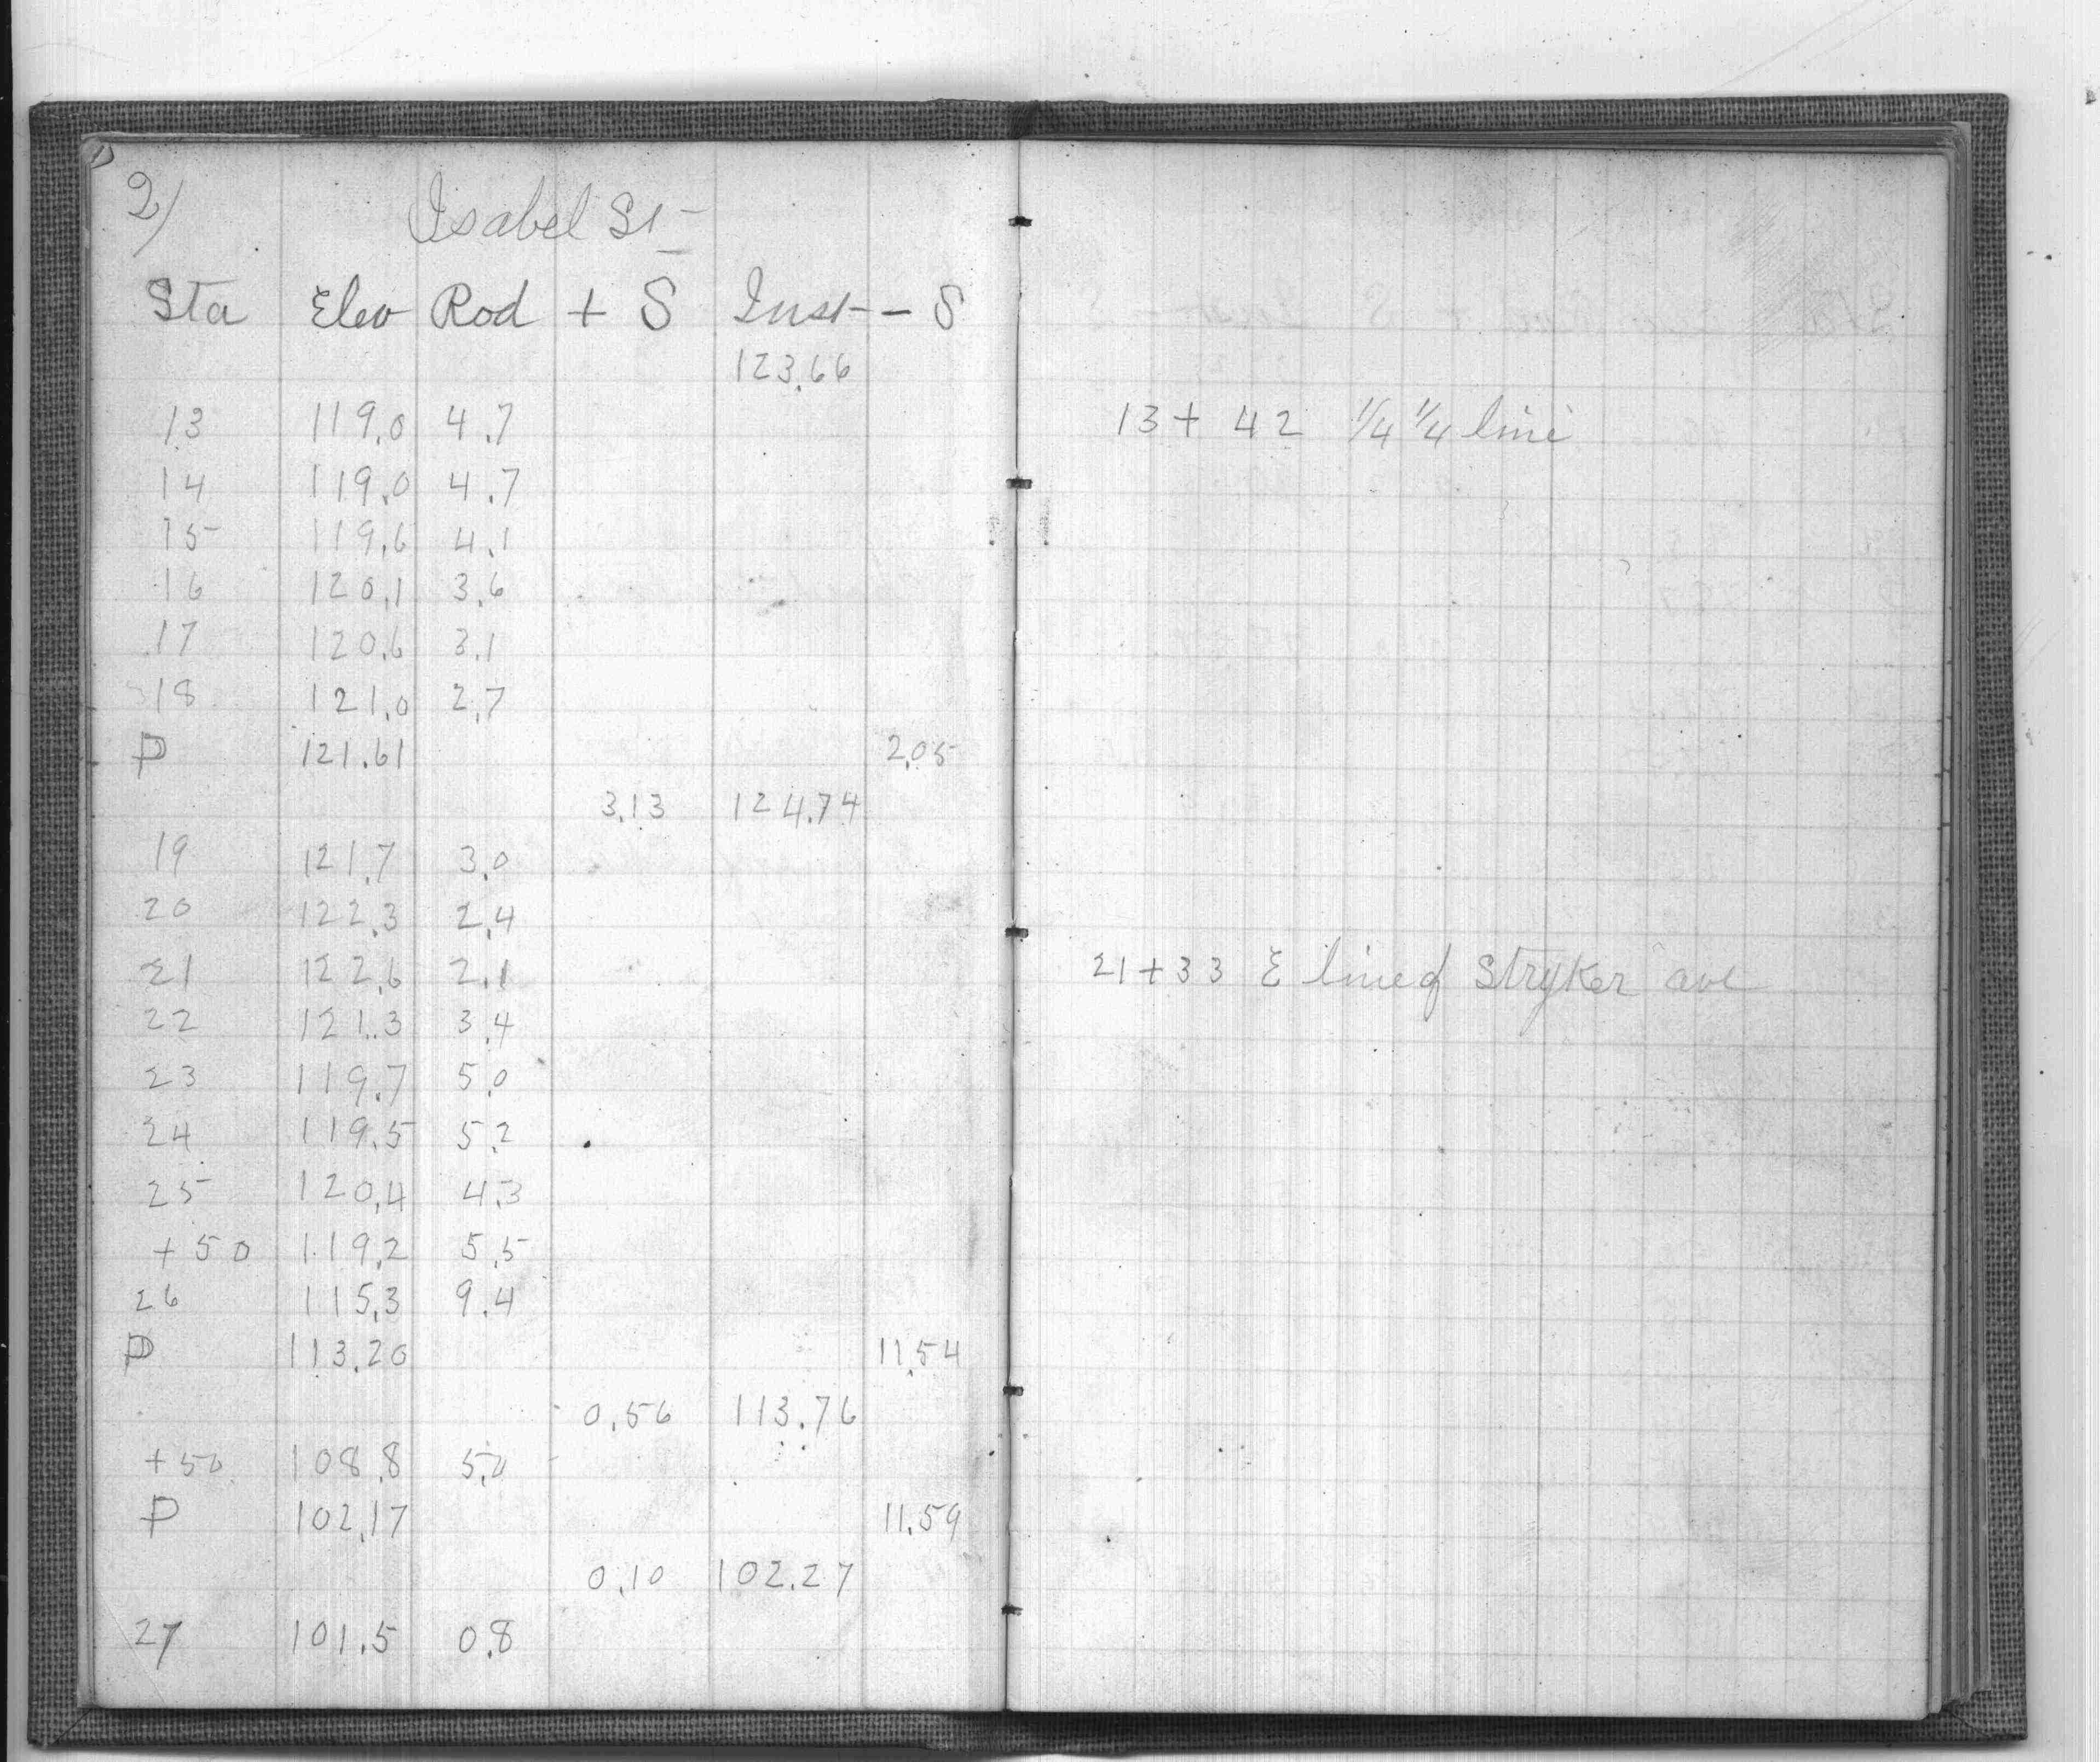 2)
Isabel St
Sta Elev Rod + S Inst - S
123.66
13 119.0 4.7
14 119.0 4.7
15 119.6 4.1
16 120.1 3.6
17 120.6 3.1
18 121.0 2.7
P 121.61 2.05
3.13 124.74
19 121.7 3.0
20 122.3 2.4
21 122.6 2.1
22 121.3 3.4
23 119.7 5.0
24 119.5 5.2
25 120.4 4.3
+50 119.2 5.5
26 115.3 9.4
P 113.20 11.54
0.56 113.76
+50 108.8 5.0
P 102.17 11.59
0.10 102.27
27 101.5 0.8
13+ 42 1/4 1/4 line
21+33 E line of Stryker ave